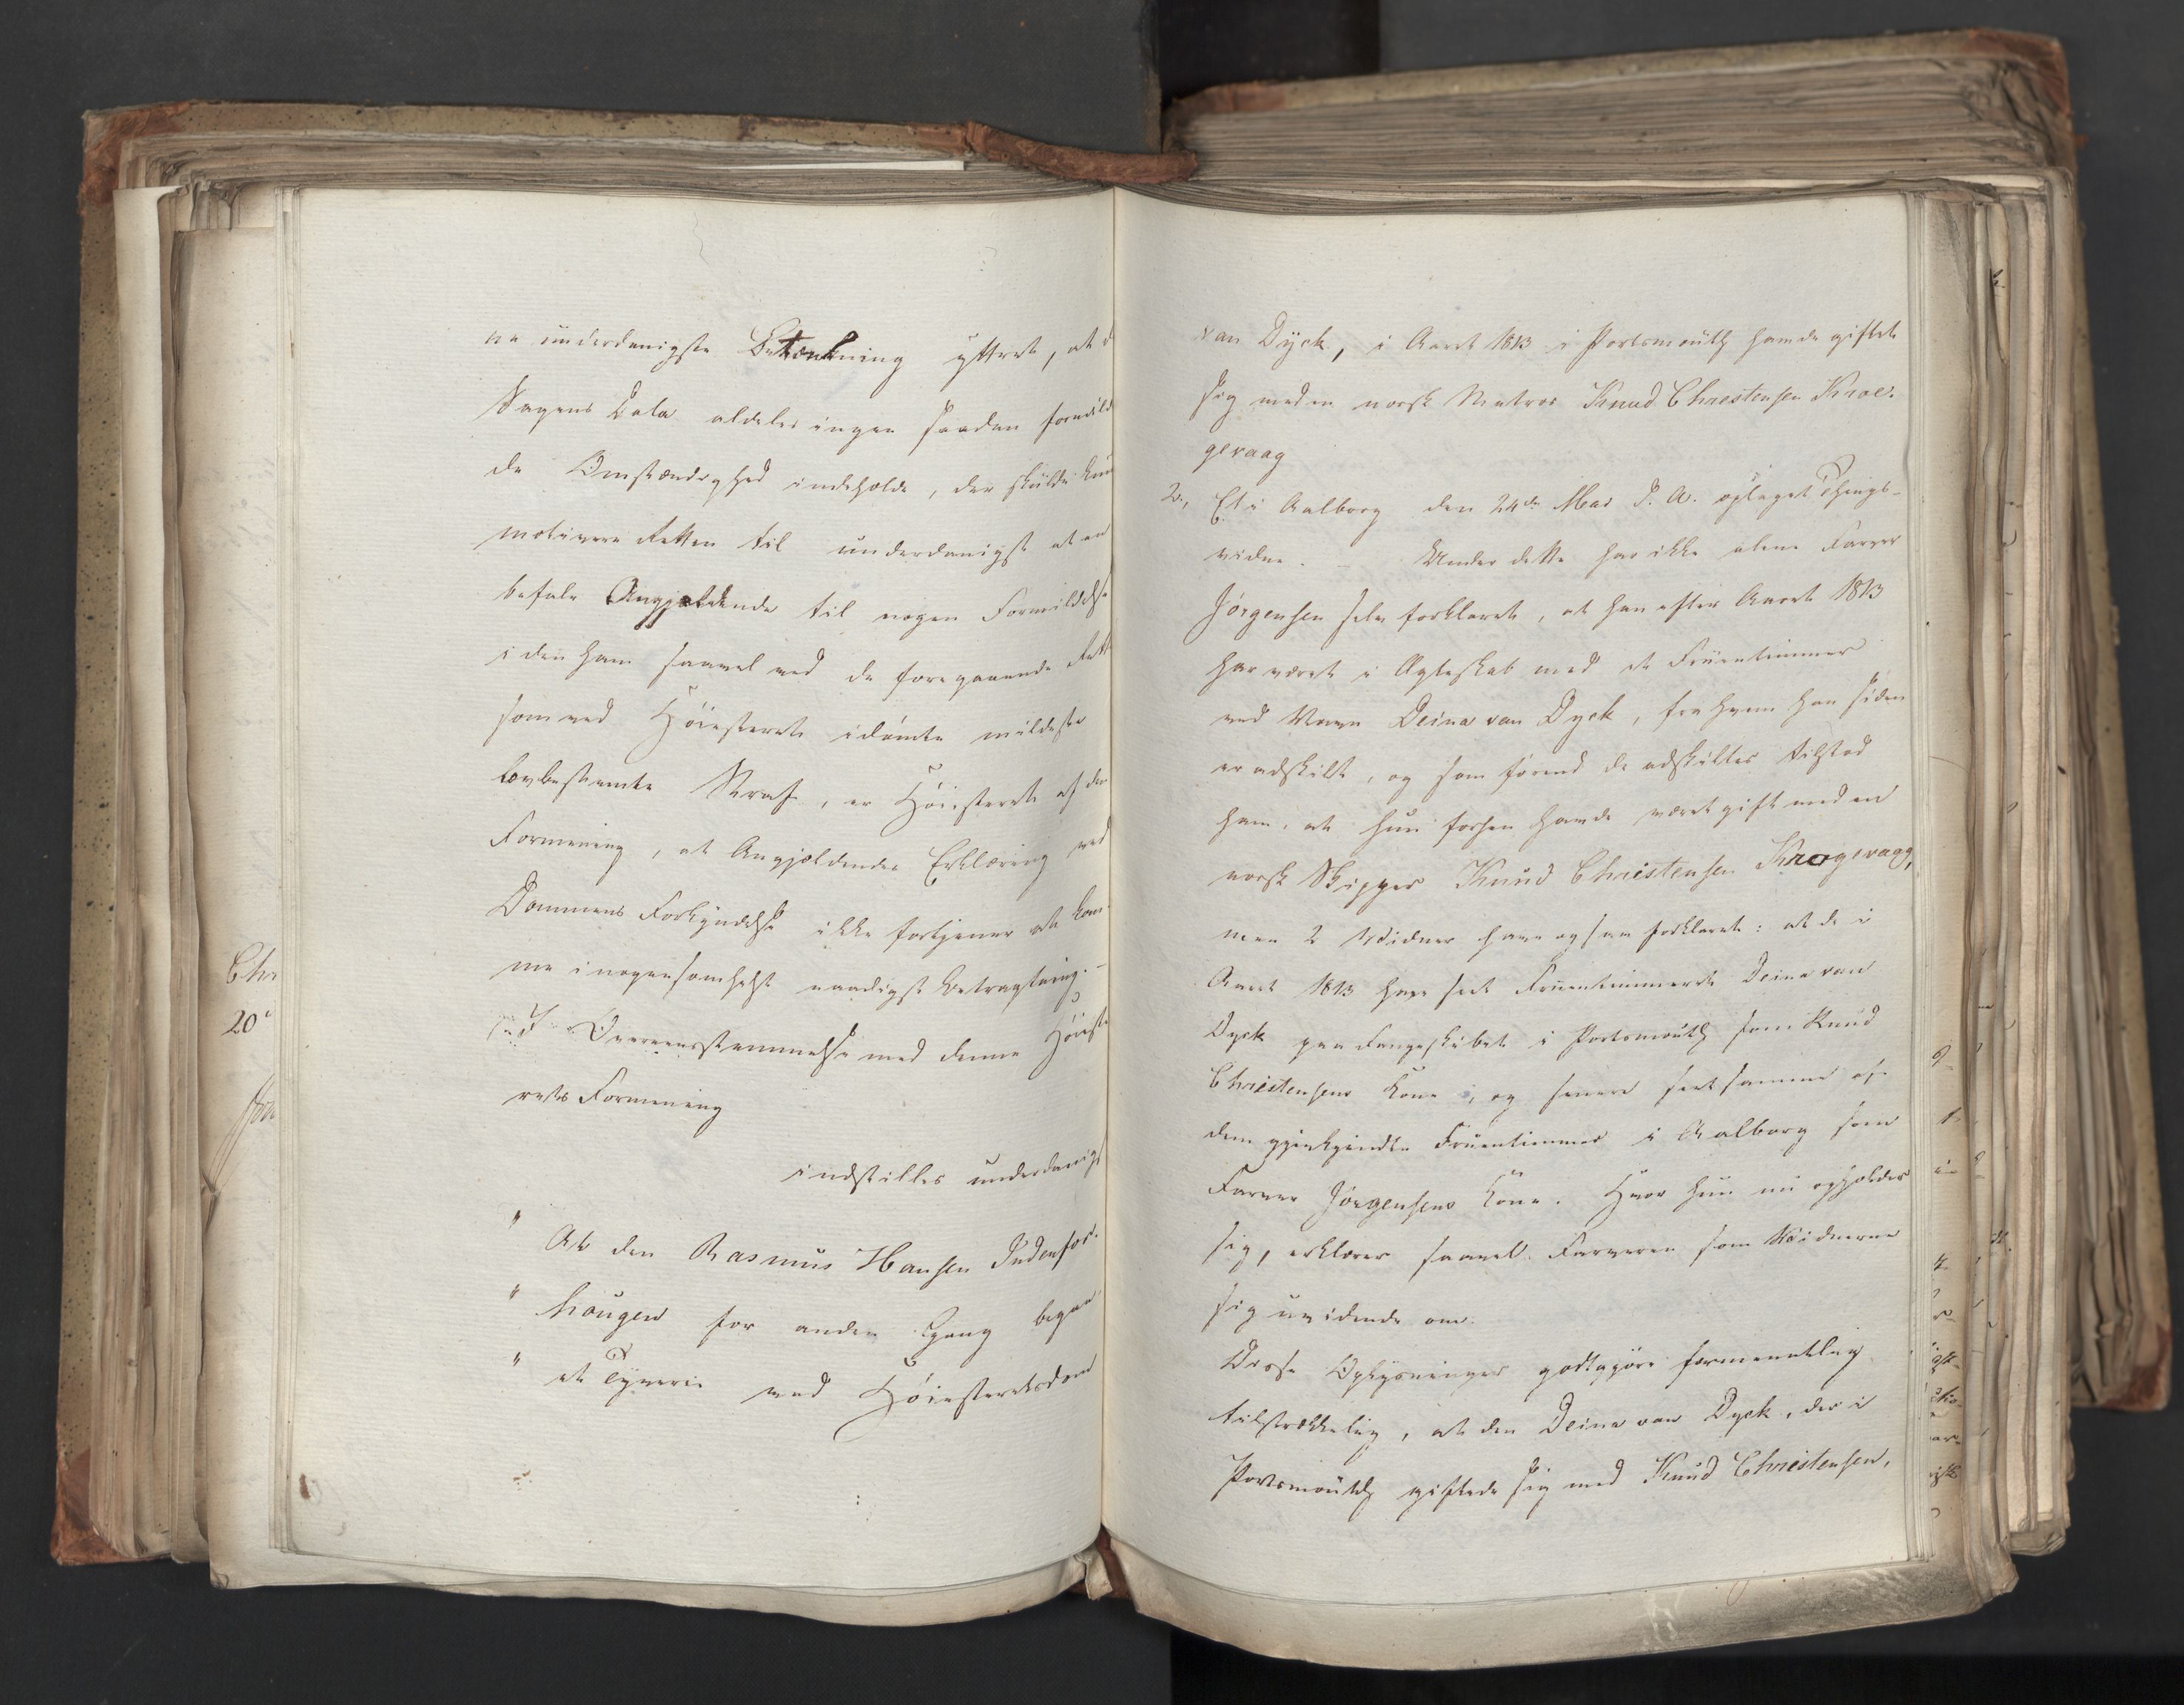 ne underdanigste Betænkning yttret, at d
Sagens Data aldeles ingen saadan formild
de Omstændighed indeholde, der skulde kun
motivere Retten til underdanigst at an
befale Angjældende til nogen Formildelse
i den ham saavel ved de foregaaende Rett
som ved Høiesteret idømte mildeste
lovbestemte Straf, er Høiesteret af den
Formening, at Angjældendes Erklæring ved
Dommens Forkyndelse ikke fortjener at kom-
me i nogensomhelst naadigst Betragtning. –
I Overeensstemmelse med denne Høieste
rets Formening
indstilles underdanigst
" At den Rasmus Hansen Indenfor-
" hougen for anden Gang begaa
" et Tyverie ved Høiesteretsdom
van Dyck, i Aaret 1813 i Portsmouth havde giftet
sig med en norsk Matros Knud Christensen Kroe-
gevaag
2., Et i Aalborg den 24de Mai d. A. optaget Things-
vidne. – Under dette har ikke alene Farver
Jørgensen selv forklaret, at han efter Aaret 1813
har været i Ægteskab med et Fruentimmer
ved Navn Deina van Dyck, fra hvem han siden
er adskilt, og som førend de adskiltes tilstod
ham, at hun forhen havde været gift med en
norsk Skipper Knud Christensen Krogevaag,
men 2 Vidner have ogsaa forklaret: at de i
Aaret 1813 have seet Fruentimmeret Deina van
Dyck paa Fangeskibet i Portsmouth som Knud
Christensens Kone, og senere seet samme af
dem gjenkjendte Fruentimmer i Aalborg som
Farver Jørgensens Kone. Hvor hun nu opholder
sig, erklærer saavel Farveren som Vidnerne
sig uvidende om.
Disse Oplysninger godtgjøre formeentlig
tilstrækkelig, at den Deina van Dyck, der i
Portsmouth giftede sig med Knud Christensen,
Chr
20